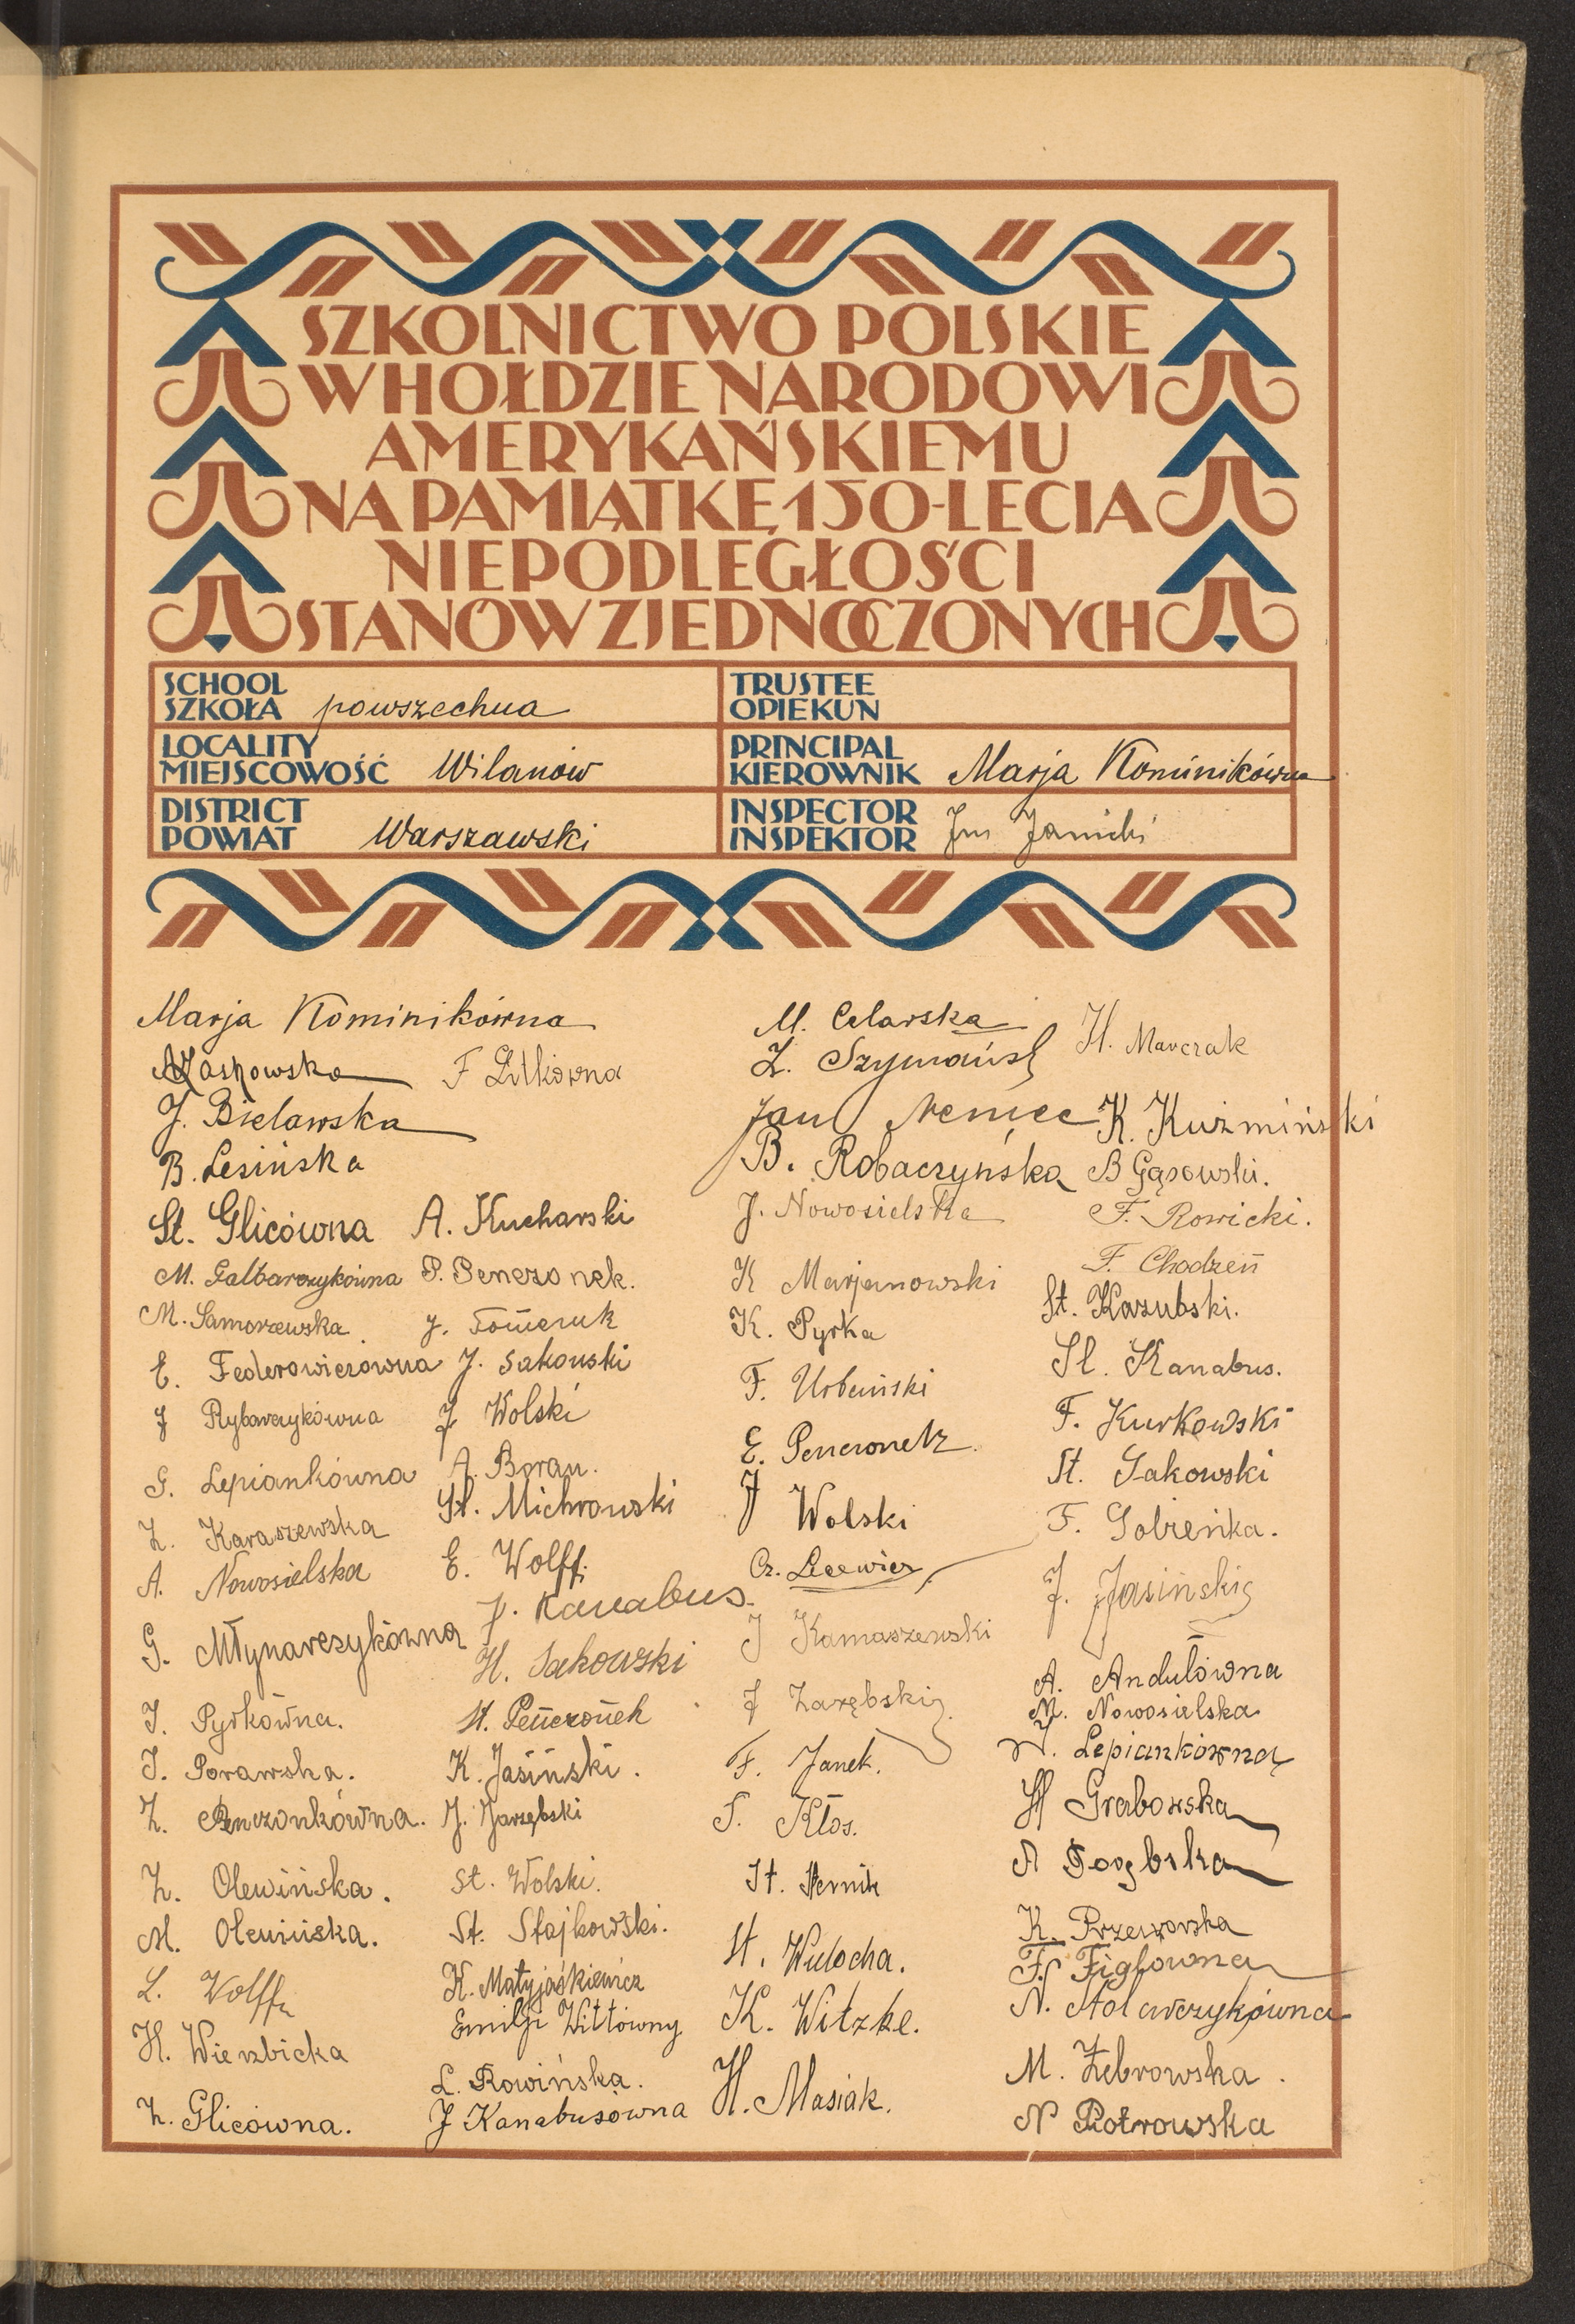 SZKOLNICTWO POLSKIE
W HOŁDZIE NARODOWI
AMERYKAŃSKIEMU
NA PAMIĄTKĘ 150-LECIA
NIEPODLEGŁOŚCI
STANÓW ZJEDNOCZONYCH
SCHOOL
SZKOŁA powszechna
TRUSTEE
OPIEKUN
LOCALITY
MIEJSCOWOŚĆ Wilanów
PRINCIPAL
KIEROWNIK Marja Kominikówna
DISTRICT
POWIAT Warszawski
INSPECTOR
INSPEKTOR Janicki
Marja Kominikówna
F
J. Bielawska
B. Lesińska
St. Glicówna
A. Kucharski
M. Galbarczykówna
P. Penczonek.
M. Samorzewska.
J.
E. Federowiczówna
J. Sakowski
J Rybarczykówna
J Wolski
G. Lepiankówna
A. Boran.
Z. Karaszewska
St. Michrowski
A. Nowosielska
E. Wolff.
J. Kanabus.
G. Młynarczykówna
H. Sakowski
J. Pyrkówna.
St. Penczonek
J. Porawska.
K. Jasiński.
Z. Penczonkówna.
J. Jarzębski
Z. Olewińska.
St. Wolski.
M. Olewińska.
St. Stajkowski.
L. Wolff
K. Matyjaśkiewicz
H. Wierzbicka
Emilji Wittówny
L. Rowińska.
Z. Glicówna.
J Kanabusówna
M. Celarska
Z.
H. Marczak
Jan
K. Kuźmiński
B. Robaczyńska
B Gąsowski.
J. Nowosielska
F. Rowicki.
F. Chodzeń
K Marjanowski
St. Kazubski.
K. Pyrka
St. Kanabus.
F. Urbański
F. Kurkowski
E. Penczonek.
St. Sakowski
J Wolski
F. Sobieńka.
Cz.
J. Jasiński
J Kamaszewski
A. Andulówna
J Zarębski.
M. Nowosielska
F. Janek.
Lepiankówna
S. Kłos.
H Grabowska
St. Pernik
A
St. Wulocha.
K. Przeworska
F. Figlówna
K. Witzke.
N. Stolarczykówna
H. Masiak.
M. Żebrowska.
N Piotrowska